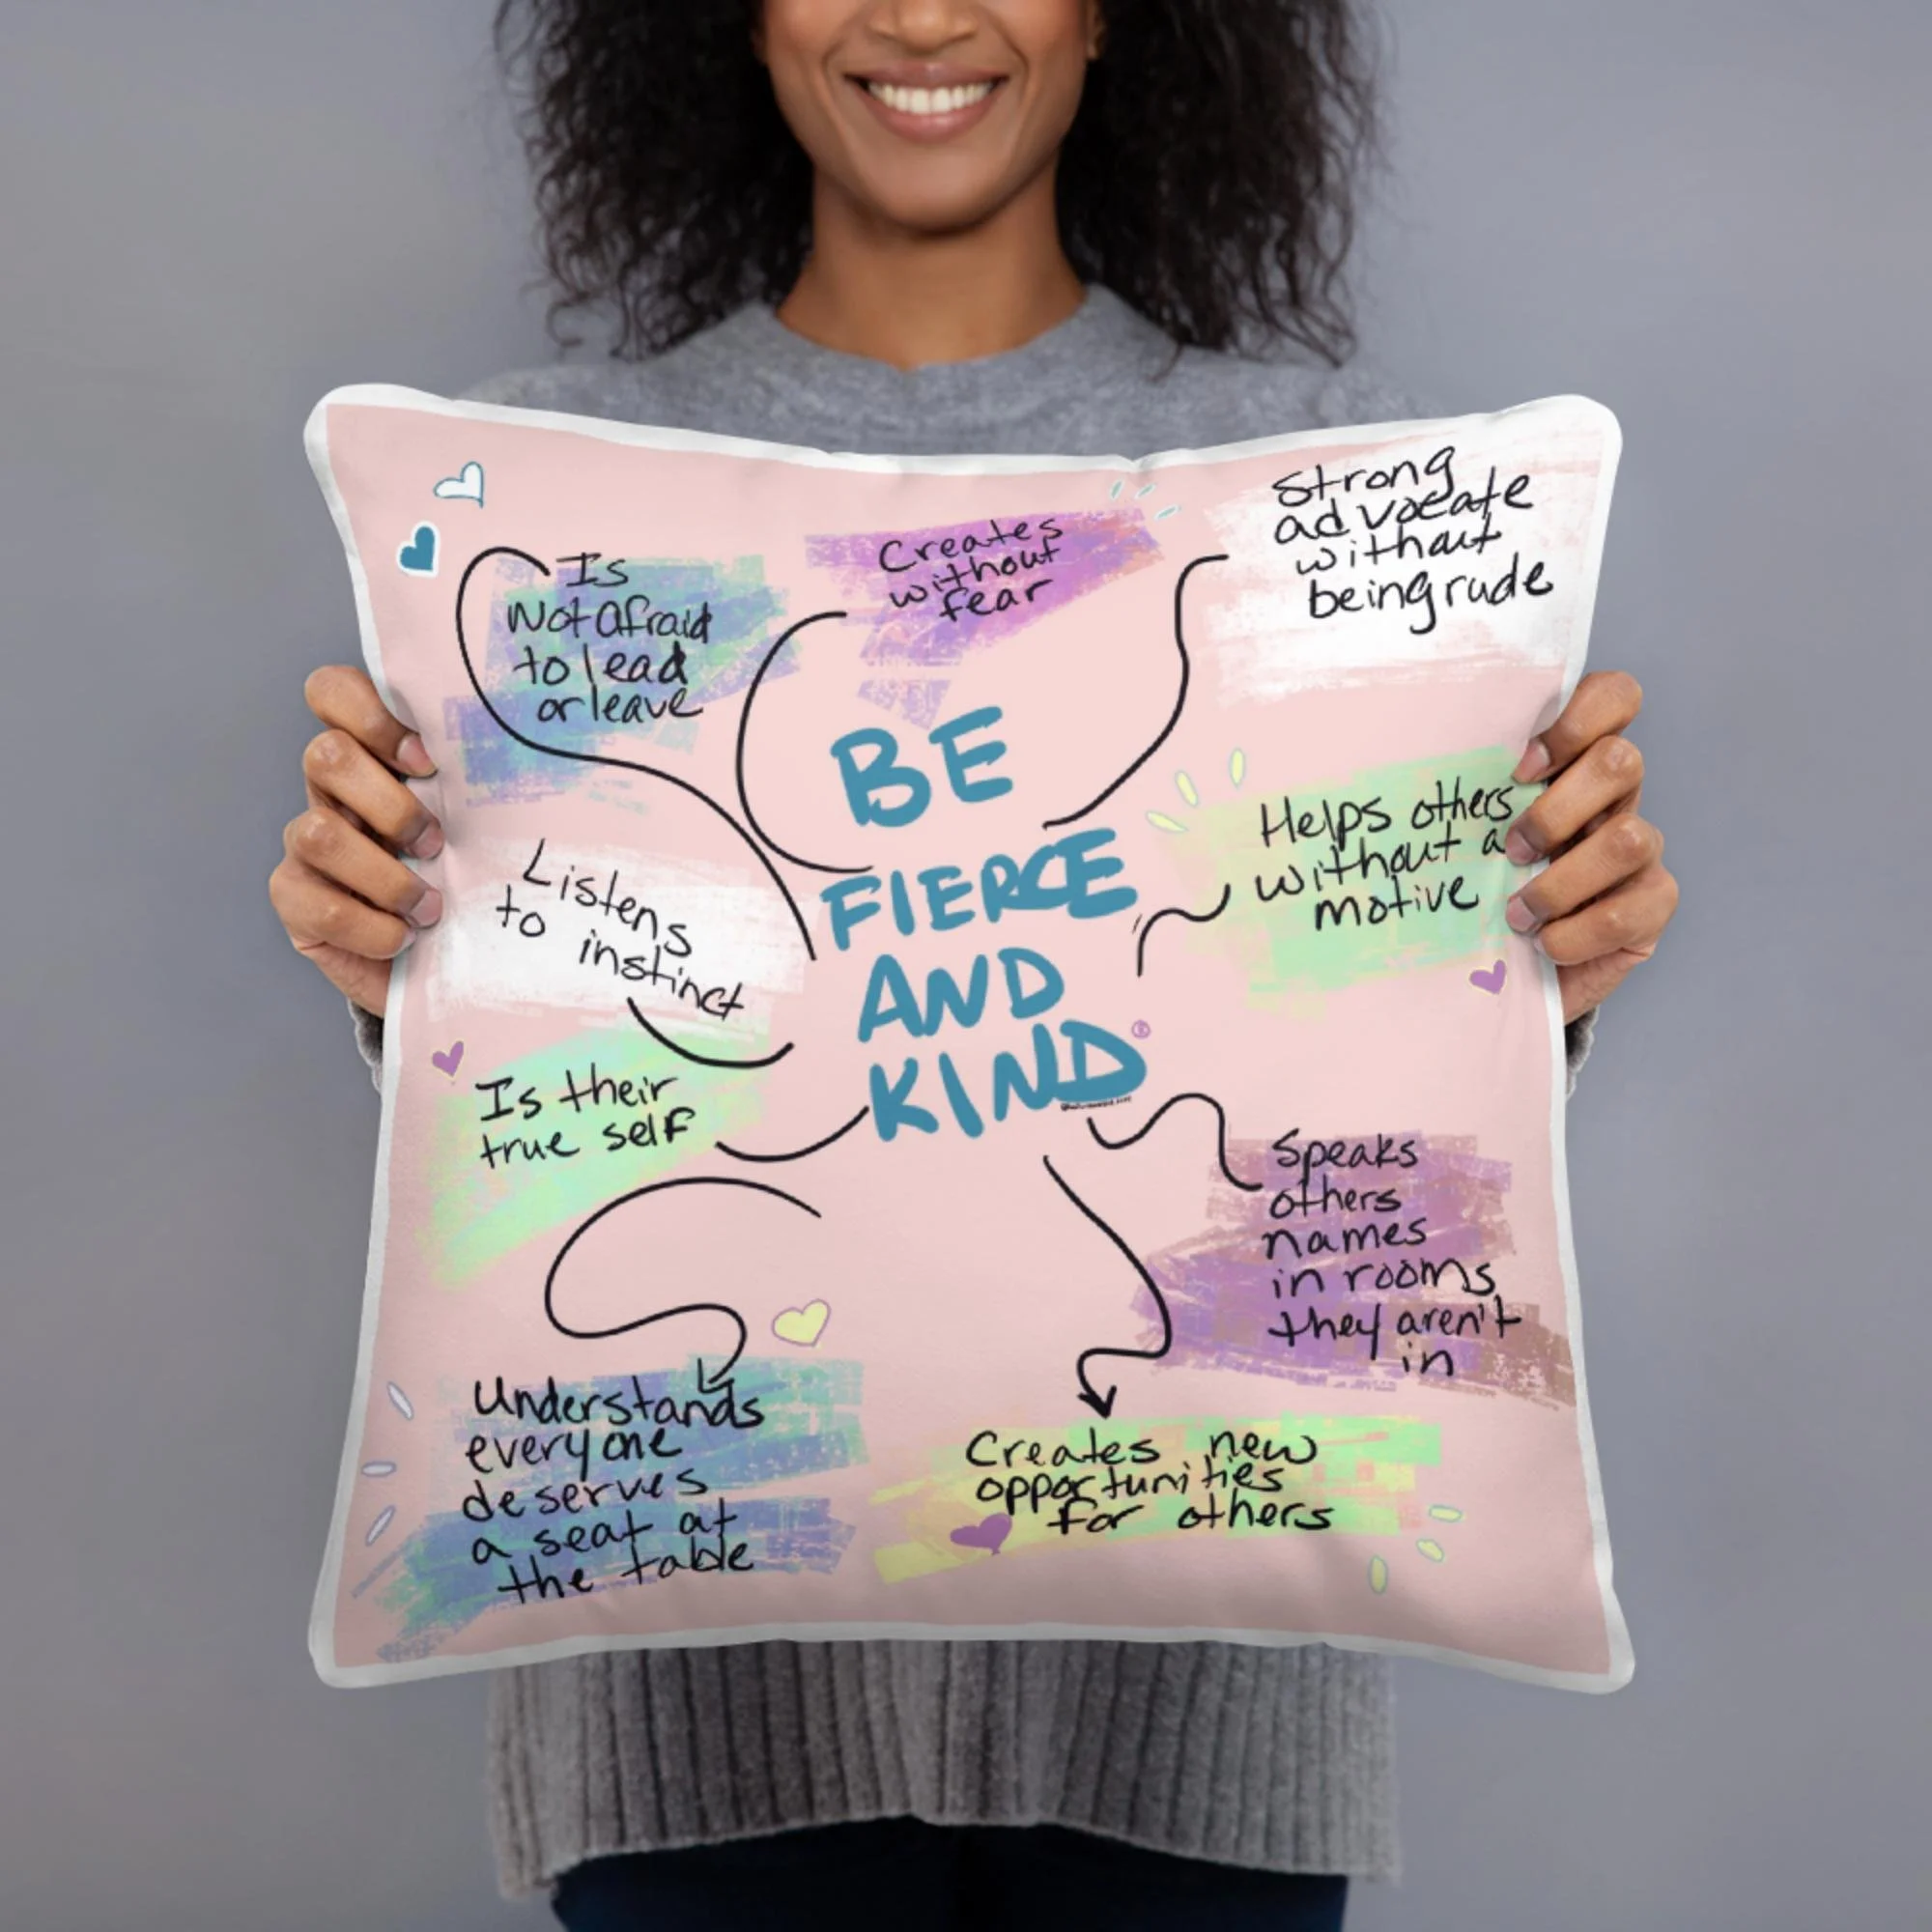 Is
Not afraid
to lead
or leave
Creates
without
fear
Strong
advocate
without
being rude
BE
FIERCE
AND
KIND®
Helps others
without a
motive
Listens
to instinct
Is their
true self
Speaks
others
names
in rooms
they aren't
in
Understands
everyone
deserves
a seat at
the table
Creates new
opportunities
for others